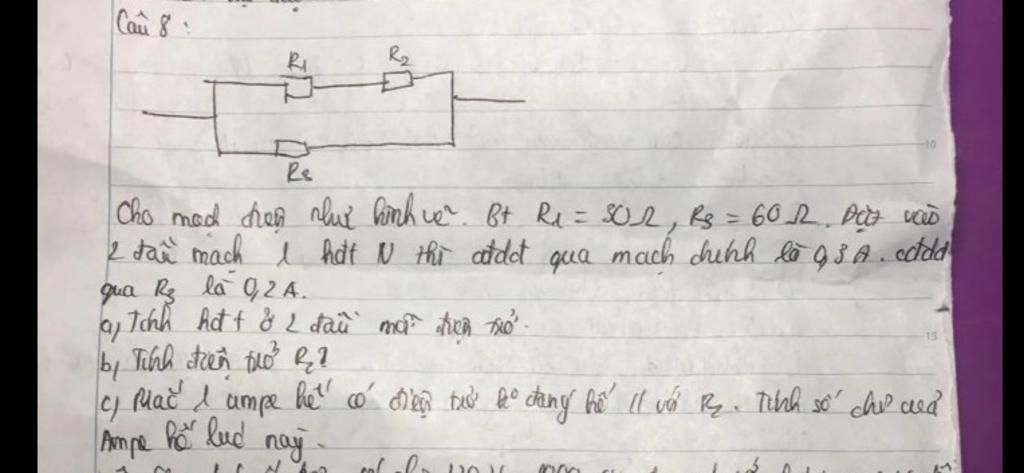 Câu 8 :
R1 R2
R3
Cho mạch điện như hình vẽ. Bt R1 = 30Ω, R3 = 60Ω. Đặt vào
2 đầu mạch 1 hđt thì cđdđ qua mạch chính là 0,3A. cđdđ
qua R3 là 0,2A.
a, Tính hđt ở 2 đầu mỗi điện trở.
b, Tính điện trở R2?
c, Mắc 1 ampe kế có điện trở ko đáng kể // với R2. Tính số chỉ của
Ampe kế lúc này.